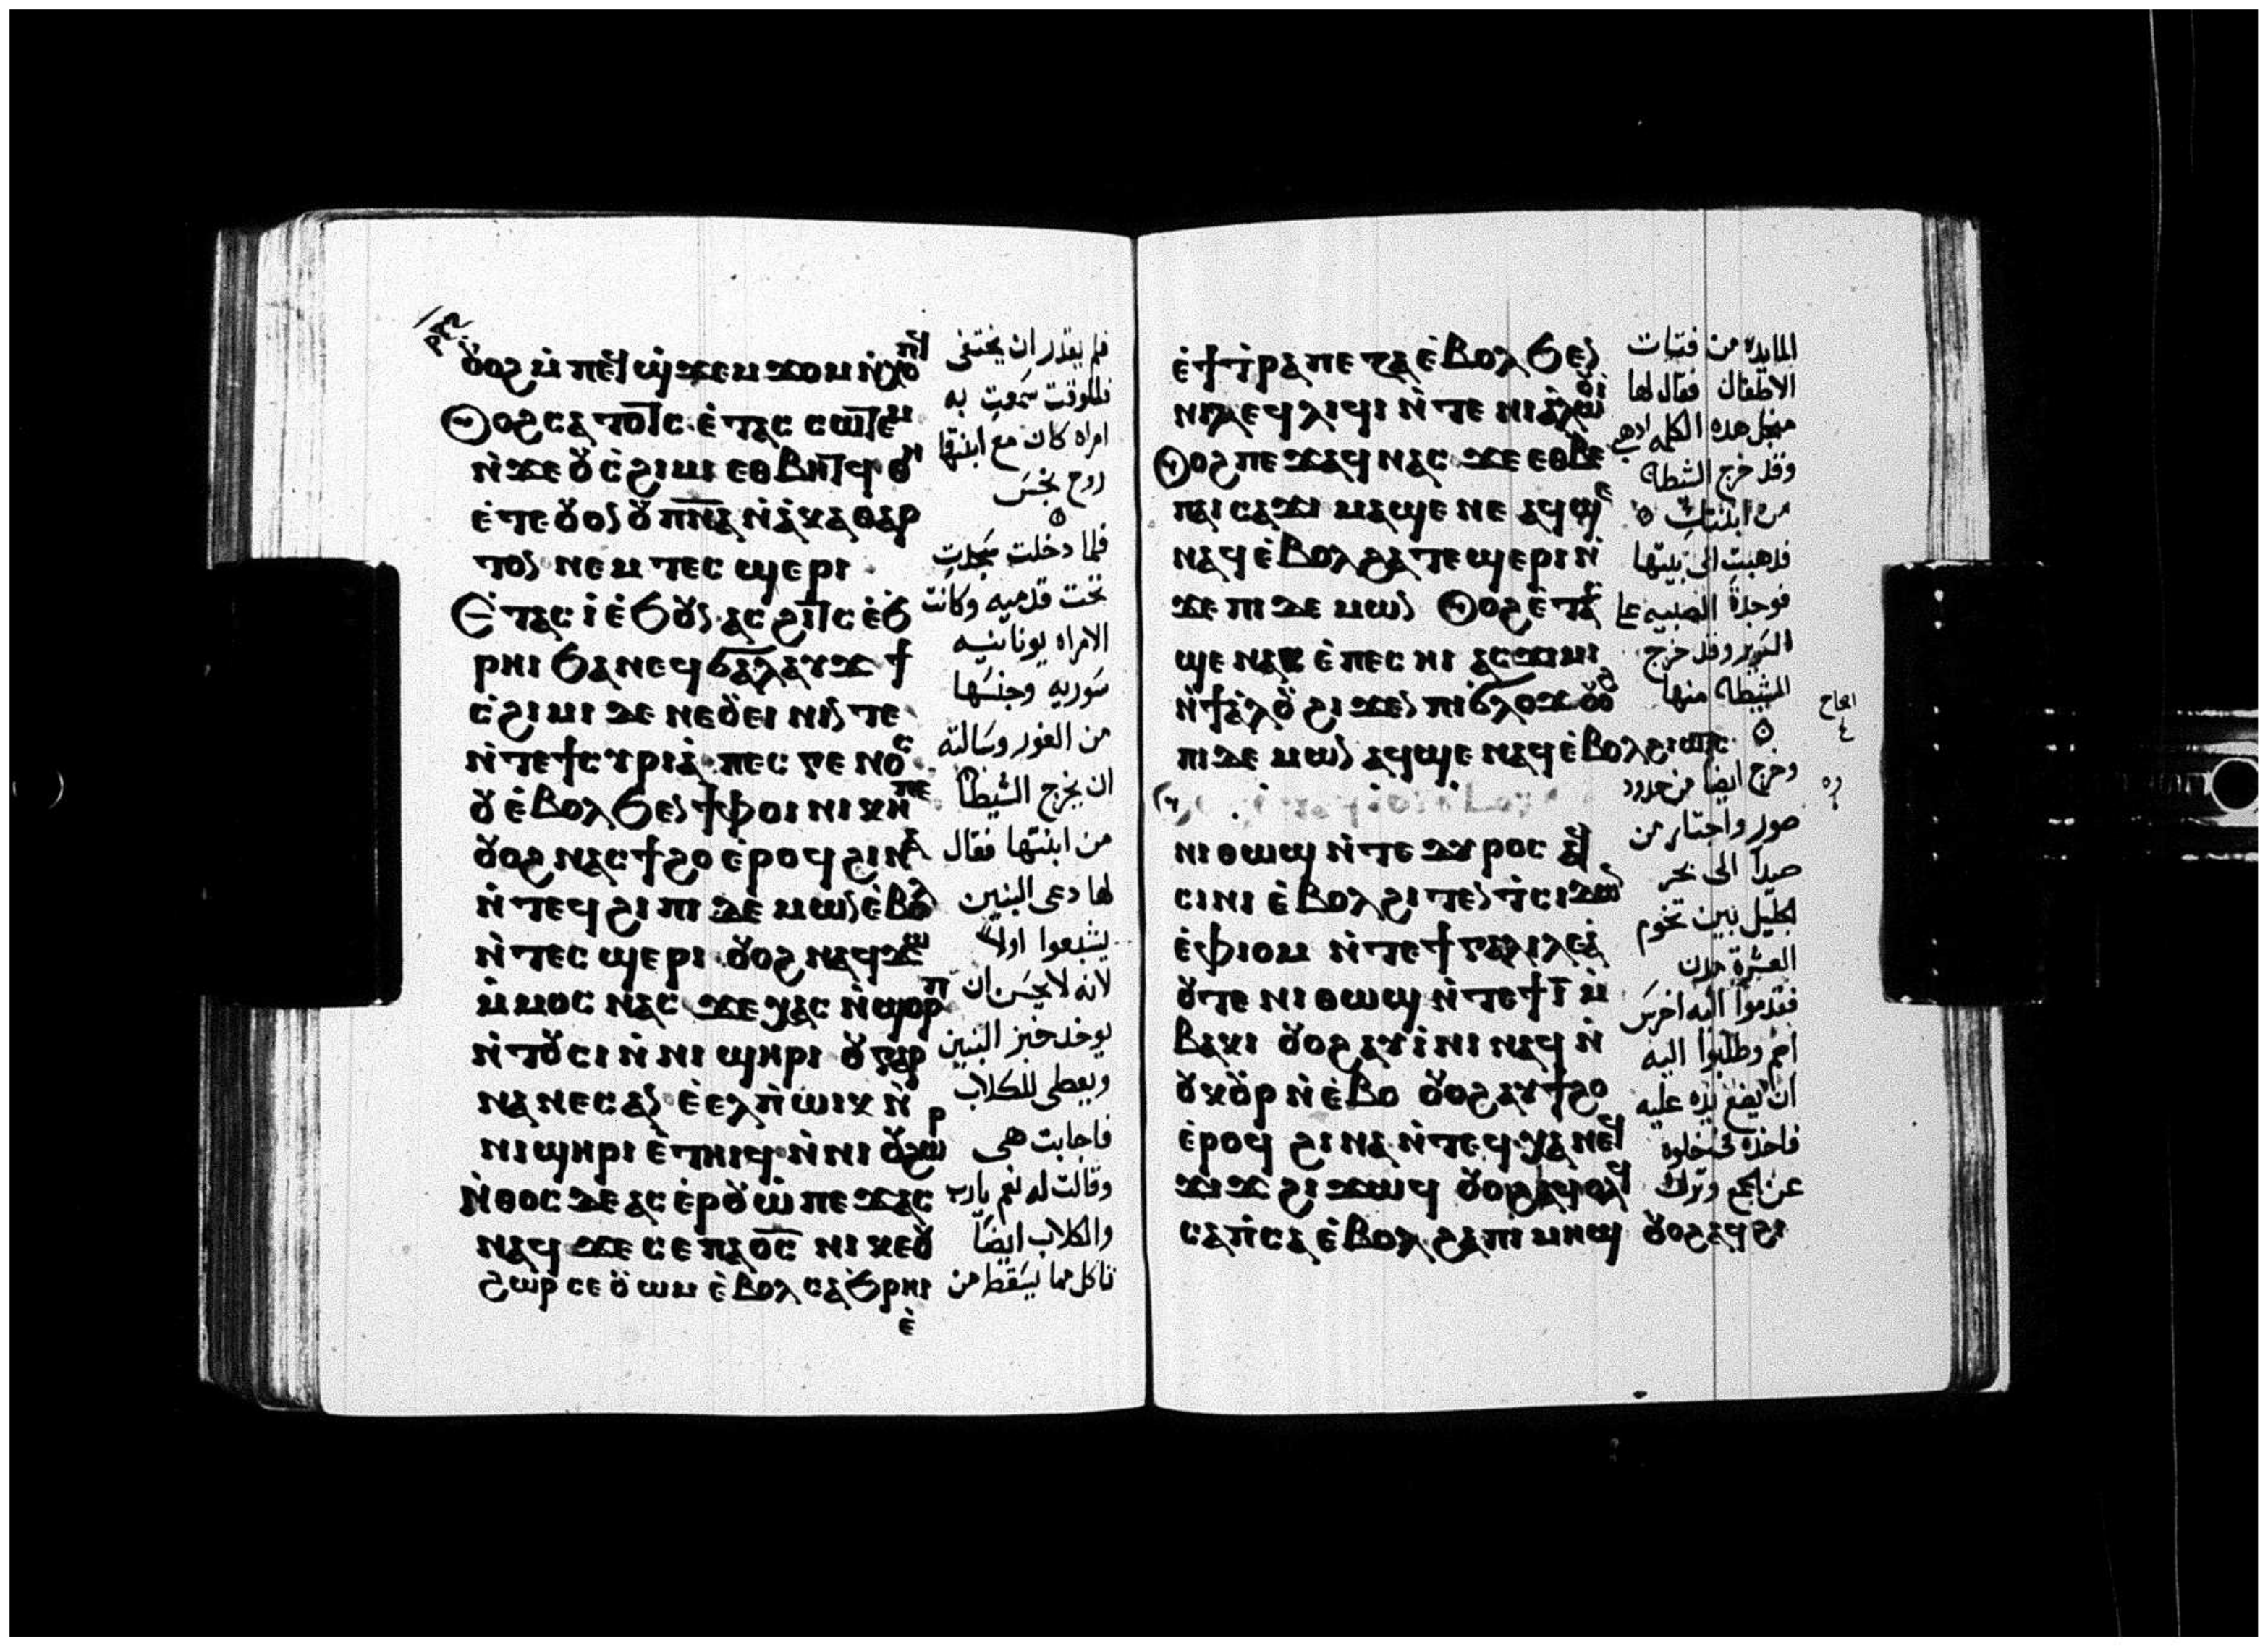 ⲟⲩⲟϩ ⲙ̀ⲡⲉϥϣ̀ϫⲉⲙϫⲟⲙ ⲛ̀ⲭⲟⲡϥ
Ⲟⲩⲟϩ ⲥⲁⲧⲟⲧⲥ ⲉ̀ⲧⲁⲥ ⲥⲱⲧⲉⲙ
ⲛ̀ϫⲉ ⲟⲩⲥ̀ϩⲓⲙⲓ ⲉⲑⲃⲏⲧϥ ⲑⲏ
ⲉ̀ⲧⲉ ⲟⲩⲟⲛ ⲟⲩⲡ̅ⲛ̅ⲁ̅ ⲛ̀ⲁ̀ⲕⲁⲑⲁⲣ
ⲧⲟⲛ ⲛⲉⲙ ⲧⲉⲥϣⲉⲣⲓ
Ⲉ̀ⲧⲁⲥⲓ̀ ⲉ̀ϧⲟⲩⲛ ⲁⲥϩⲓⲧⲥ ⲉ̀ϧ
ⲣⲏⲓ ϧⲁ ⲛⲉϥϭⲁⲗⲁⲩϫ ϯ
ⲥ̀ϩⲓⲙⲓ ⲇⲉ ⲛⲉ ⲟⲩⲉⲓⲛⲓⲛ ⲧⲉ
ⲛ̀ⲧⲉ ϯⲥⲩⲣⲓⲁ̀ ⲡⲉⲥⲅⲉⲛⲟⲥ
ⲟⲩ ⲉ̀ⲃⲟⲗ ϧⲉⲛ ϯⲫⲟⲓⲛⲓⲕⲏ ⲡⲉ
ⲟⲩⲟϩ ⲛⲁⲥϯϩⲟ ⲉ̀ⲣⲟϥ ϩⲓⲛⲁ
ⲛ̀ⲧⲉϥϩⲓ ⲡⲓⲇⲉⲙⲱⲛ ⲉ̀ⲃⲟⲗ
ⲛ̀ⲧⲉⲥϣⲉⲣⲓ ⲟⲩⲟϩ ⲛⲁϥϫⲱ
ⲙ̀ⲙⲟⲥ ⲛⲁⲥ ϫⲉ ⲭⲁⲥ ⲛ̀ϣⲟⲣⲡ
ⲛ̀ⲧⲟⲩⲥⲓ ⲛ̀ⲛⲓϣⲏⲣⲓ ⲟⲩ ⲅⲁⲣ
ⲛⲁⲛⲉⲥ ⲁⲛ ⲉ̀ⲉⲗ ⲡ̀ⲱⲓⲕ ⲛ̀
ⲛⲓϣⲏⲣⲓ ⲉ̀ⲧⲏⲓϥ ⲛ̀ⲛⲓⲟⲩϩⲱⲣ
Ⲛ̀ⲑⲟⲥ ⲇⲉ ⲁⲥⲉⲣⲟⲩⲱ̀ ⲡⲉϫⲁⲥ
ⲛⲁϥ ϫⲉ ⲥⲉ ⲡⲁⲟ̅ⲥ̅ ⲛⲓⲕⲉⲟⲩ
ϩⲱⲣ ⲥⲉⲟⲩⲱⲙ ⲉ̀ⲃⲟⲗ ⲥⲁϧⲣⲏⲓ
ⲉ̀
فلم يقدر ان يختفى
فللوقت سمعت به
امراه كان مع ابنتها
روح نجس
فلما دخلت سجدت
تحت قدميه وكانت
الامراه يونانيه
سوريه وجنسها
من الغور وسالته
ان يخرج الشيطان
من ابنتها فقال
لها دعى البنين
يشبعوا اولا
لانه لا يحسن ان
يوخد خبز البنين
ويعطى للكلاب
فاجابت هى
وقالت له نعم يارب
والكلاب ايضا
تاكل مما يسقط من
ⲉ̀ϯⲧ̀ⲣⲁⲡⲉⲍⲁ ⲉ̀ⲃⲟⲗ ϧⲉⲛ
ⲛⲓⲗⲉϥⲗⲓϥⲓ ⲛ̀ⲧⲉ ⲛⲓⲁ̀ⲗⲱⲟⲩⲓ
Ⲟⲩⲟϩ ⲡⲉϫⲁϥ ⲛⲁⲥ ϫⲉ ⲉⲑⲃⲉ
ⲡⲁⲓⲥⲁϫⲓ ⲙⲁϣⲉ ⲛⲉ ⲁϥϣⲉ
ⲛⲁϥ ⲉ̀ⲃⲟⲗ ϩⲁ ⲧⲉϣⲉⲣⲓ ⲛ̀
ϫⲉ ⲡⲓⲇⲉⲙⲱⲛ Ⲟⲩⲟϩ ⲉ̀ⲧⲁⲥ
ϣⲉ ⲛⲁⲥ ⲉ̀ⲡⲉⲥⲏⲓ ⲁⲥϫⲓⲙⲓ
ⲛ̀ϯⲁ̀ⲗⲟⲩ ϩⲓϫⲉⲛ ⲡⲓϭⲗⲟϫ ⲟⲩⲟϩ
ⲡⲓⲇⲉⲙⲱⲛ ⲁϥϣⲉ ⲛⲁϥ ⲉ̀ⲃⲟⲗ ϩⲓⲱⲧⲥ
ⲛⲓⲑⲱϣ ⲛ̀ⲧⲉ ⲧⲩⲣⲟⲥ ⲁϥ
ⲥⲓⲛⲓ ⲉ̀ⲃⲟⲗ ϩⲓⲧⲉⲛ ⲧ̀ⲥⲓⲇⲱⲛ
ⲉ̀ⲫⲓⲟⲙ ⲛ̀ⲧⲉ ϯⲅⲁⲗⲓⲗⲉⲁ̀
ⲟⲩⲧⲉ ⲛⲓⲑⲱϣ ⲛ̀ⲧⲉ ϯⲓ̅ ⲙ̀
ⲃⲁⲕⲓ ⲟⲩⲟϩ ⲁⲩⲓ̀ⲛⲓ ⲛⲁϥ ⲛ̀
ⲟⲩⲕⲟⲩⲣ ⲛ̀ⲉ̀ⲃⲟ ⲟⲩⲟϩ ⲁⲩϯϩⲟ
ⲉ̀ⲣⲟϥ ϩⲓⲛⲁ ⲛ̀ⲧⲉϥⲭⲁ ⲛⲉϥ
ϫⲓϫ ϩⲓϫⲱϥ ⲟⲩⲟϩ ⲁϥⲟⲗϥ
ⲥⲁⲡ̀ⲥⲁ ⲉ̀ⲃⲟⲗ ϩⲁ ⲡⲓⲙⲏϣ ⲟⲩⲟϩ ⲁϥϩⲓ
المايده من فتات
الاطفال فقال لها
من اجل هذه الكلمه ادهبى
وقد خرج الشيطان
من ابنتك
فدهبت الى بيتها
فوجدة الصبيه على
السرير وقد خرج
الشيطان منها
وخرج ايضا من حدود
صور واجتاز من
صيدا الى بحر
الجليل بين تخوم
العشرة مدن
فقدموا اليه اخرس
اصم وطلبوا اليه
ان يضع يده عليه
فاخده فى خلوه
عن الجمع وترك